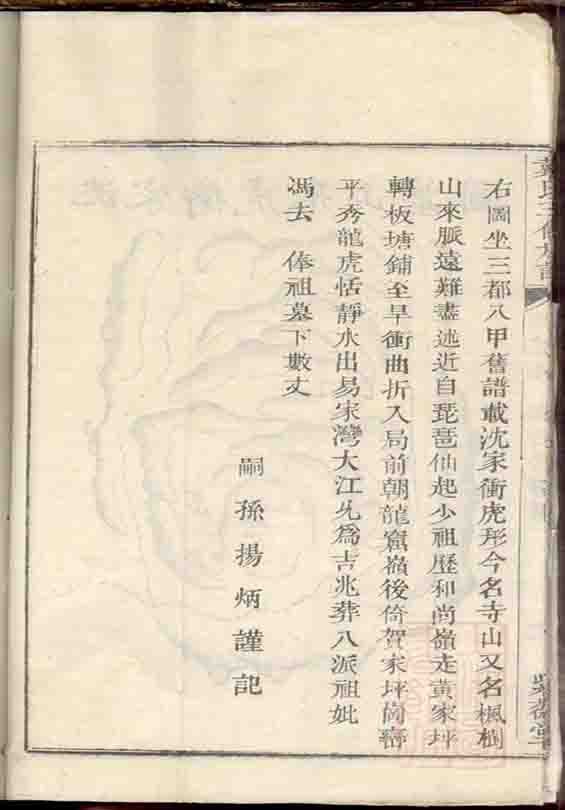 右圖坐三都八甲舊譜載沈家衝虎形今名寺山又名楓樹
山來脈遠難盡述近自琵琶仙起少祖歷和尚嶺走黃家坪
轉板塘鋪至旱衝曲折入局前朝龍窟嶺後倚賀家坪崗巒
平秀龍虎恬靜水出易家灣大江允為吉兆葬八派祖妣
馮去 俸祖墓下數丈
嗣孫揚炳謹記